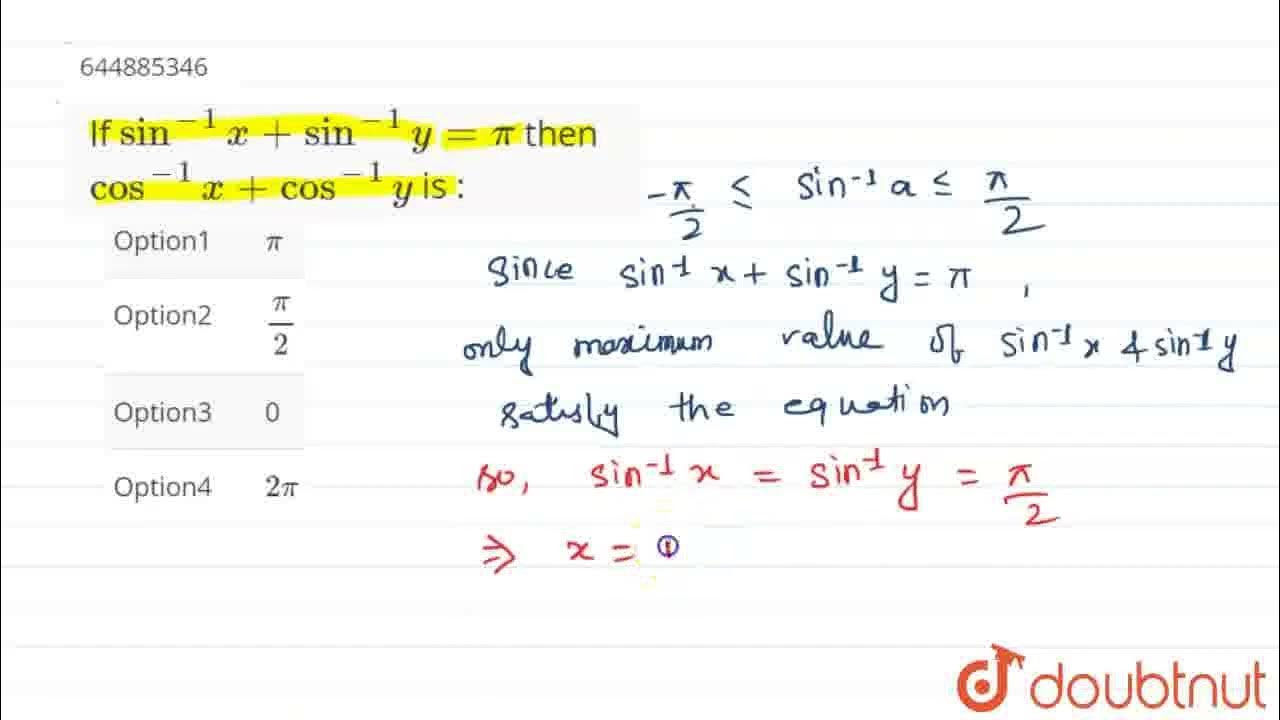 644885346
If sin⁻¹ x + sin⁻¹ y = π then
cos⁻¹ x + cos⁻¹ y is :
Option1 π
Option2 π/2
Option3 0
Option4 2π
-π/2 ≤ sin⁻¹ a ≤ π/2
Since sin⁻¹ x + sin⁻¹ y = π ,
only maximum value of sin⁻¹ x & sin⁻¹ y
satisfy the equation
so, sin⁻¹ x = sin⁻¹ y = π/2
⇒ x =
doubtnut